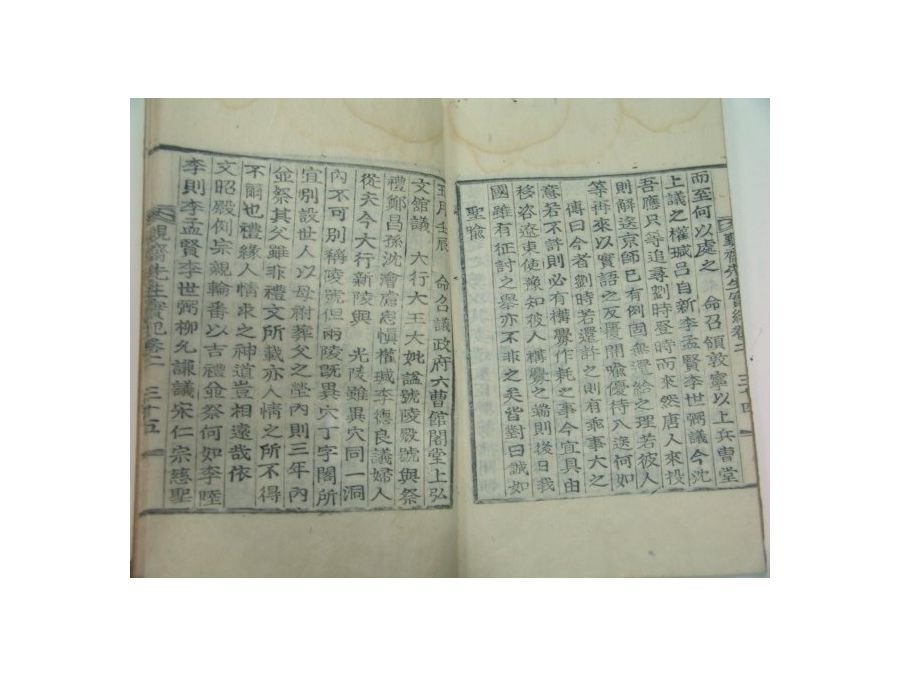 而至何以處之 命召領敦寧以上兵曹堂
上議之權瑊呂自新李孟賢李世弼議今沈
吾應只等追尋劉時登時而來然唐人來投
則解送京師已有例固無還給之理若彼人
等再來以實語之反覆開喩優待入送何如
傳曰今者劉時若還許之則有乖事大之
意若不許則必有構釁作耗之事今宜具由
移咨遼東使豫知彼人構釁之端則後日我
國雖有征討之擧亦不非之矣皆對曰誠如
聖喩
先生實紀卷二 三十四
五月壬辰 命召議政府六曹館閣堂上弘
文館議 大行大王大妃謚號陵殿號與祭
禮鄭昌孫沈澮盧思愼權瑊李德良議婦人
從夫今大行新陵與 光陵雖異穴同一洞
內不可別稱陵號但兩陵旣異穴丁字閣所
宜別設世人以母祔葬父之塋內則三年內
並祭其父雖非禮文所載亦人情之所不得
不爾也禮緣人情求之神道豈相遠哉依
文昭殿例宗親輪番以吉禮並祭何如李陸
李則李孟賢李世弼柳允謙議宋仁宗慈聖
先生實紀卷二 三十五